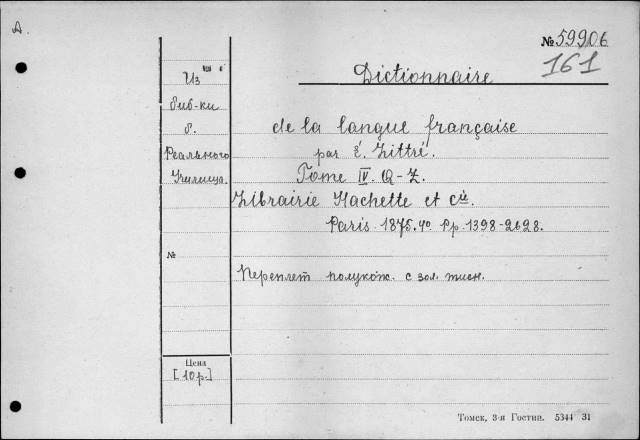 А.
№ 59906
161
Из
биб-ки
б.
Реального
Училища.
Dictionnaire
de la langue française
par É. Littré.
Tome IV. Q-Z.
Librairie Hachette et Cie.
Paris 1875. 4º Pp. 1398-2628.
№
Переплет полукож. с зол. тисн.
Цена
[10р.]
Томск, 3-я Гостип. 5344 31